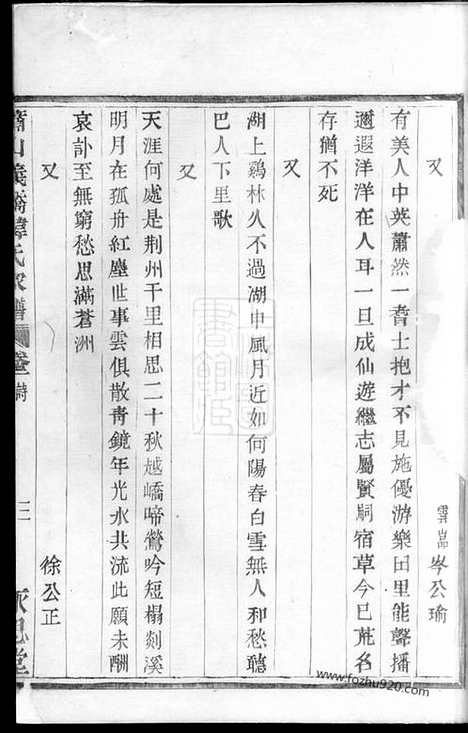 又
雲嵓 岑公瑜
有美人中英蕭然一耆士抱才不見施優游樂田里能聲播
邇遐洋洋在人耳一旦成仙遊繼志屬賢嗣宿草今已荒名
存猶不死
又
湖上鷄林久不過湖中風月近如何陽春白雪無人和愁聽
巴人下里歌
又
徐公正
天涯何處是荆州千里相思二十秋越嶠啼鶯吟短榻剡溪
明月在孤舟紅塵世事雲俱散靑鏡年光水共流此願未酬
哀訃至無窮愁思滿蒼洲
蕭山義橋韓氏家譜 卷 詩
三
永思堂
www.fozhu920.com